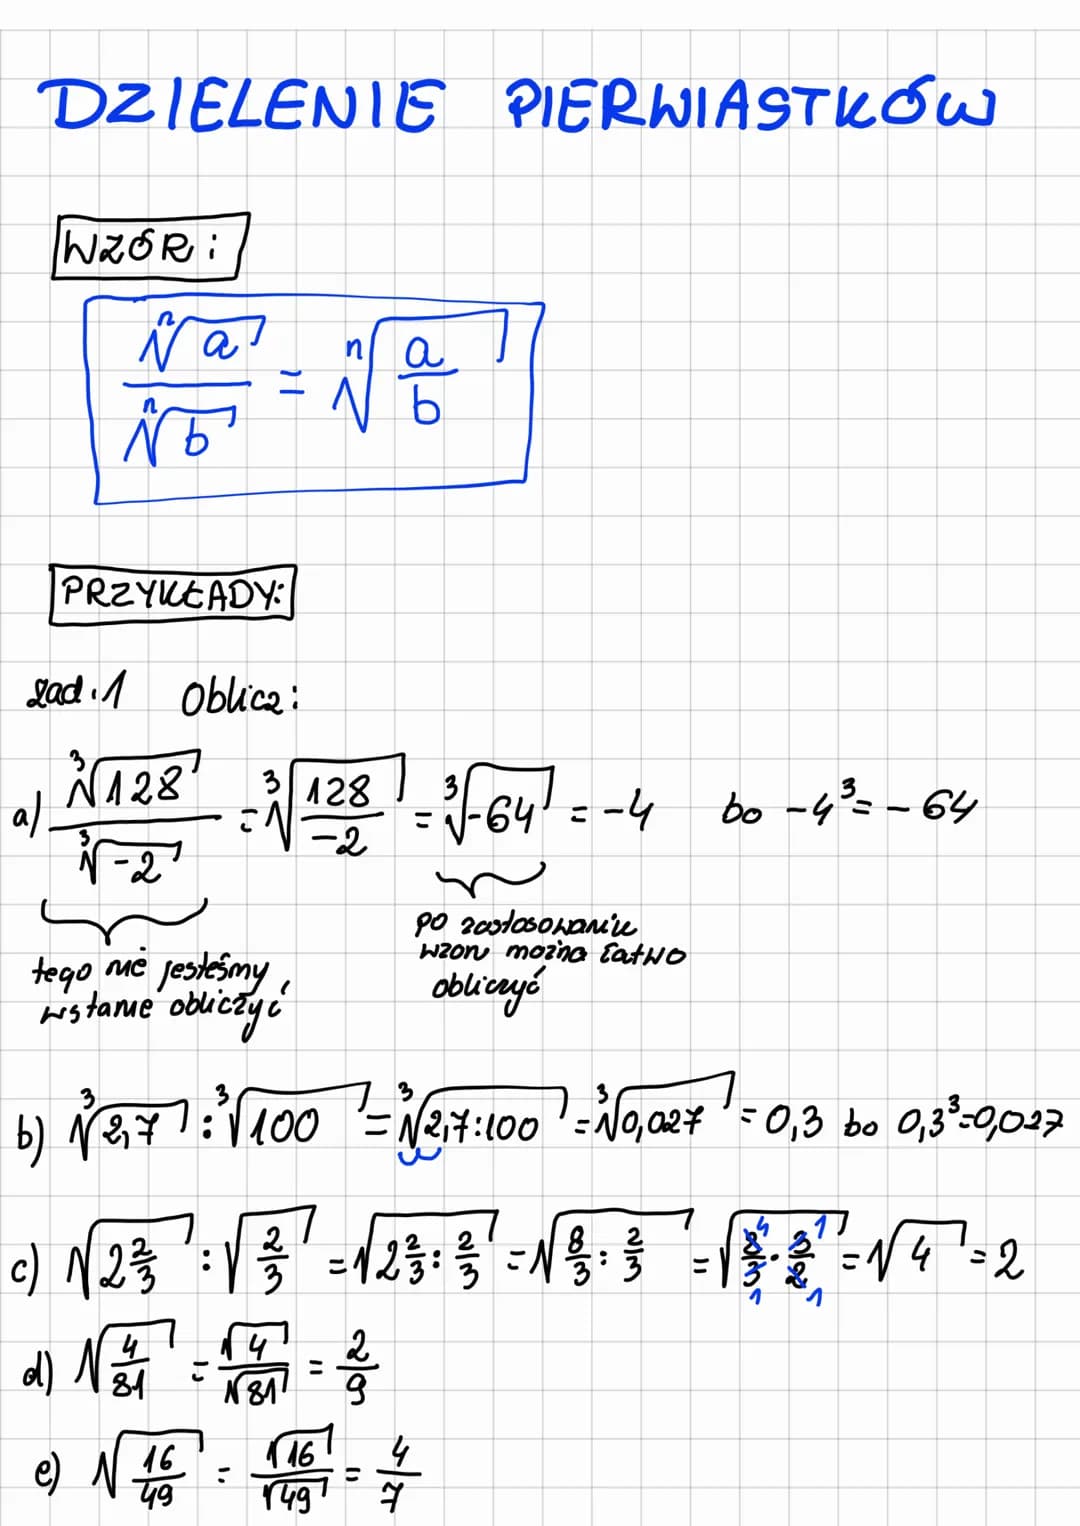 DZIELENIE PIERWIASTKÓW
WZÓR:
ⁿ√a / ⁿ√b = ⁿ√(a/b)
PRZYKŁADY:
zad.1 Oblicz:
a) ³√128 / ³√-2 = ³√(128/-2) = ³√-64 = -4 bo -4³ = -64
tego nie jesteśmy wstanie obliczyć
po zastosowaniu wzoru można łatwo obliczyć
b) ³√2,7 : ³√100 = ³√2,7:100 = ³√0,027 = 0,3 bo 0,3³=0,027
c) √(2 2/3) : √(2/3) = √(2 2/3 : 2/3) = √(8/3 : 2/3) = √(8/3 · 3/2) = √4 = 2
d) √(4/81) = √4/√81 = 2/9
e) √(16/49) = √16/√49 = 4/7